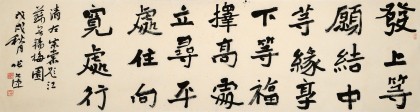 發上等
願結中
等緣享
下等福
擇高處
立尋平
處住向
寬處行
清左宗棠題江
蘇無錫梅園
戊戌秋月